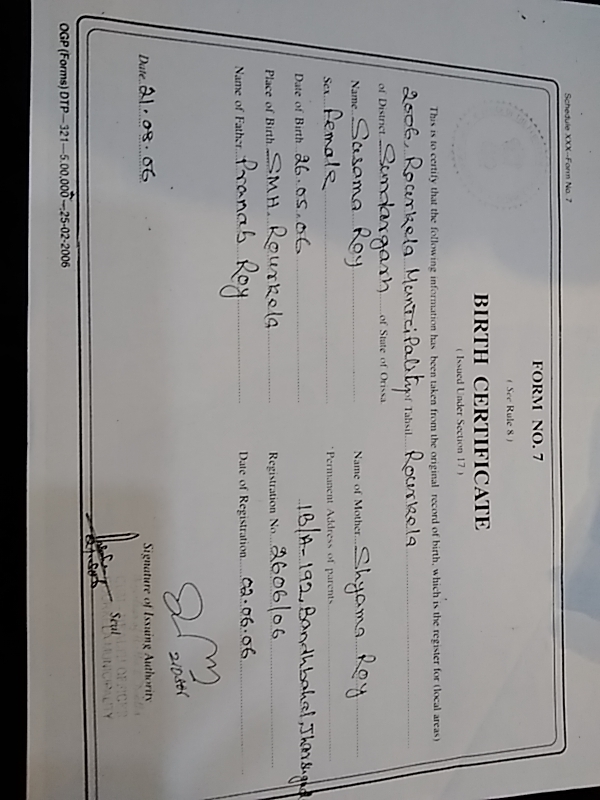 Schedule XXX—Form No. 7
FORM NO. 7
( See Rule 8 )
BIRTH CERTIFICATE
( Issued Under Section 17 )
This is to certify that the following information has been taken from the original record of birth, which is the register for (local areas)
2006, Rourkela Municipality of Tahsil Rourkela
of District Sundargarh of State of Orissa.
Name Sasama Roy
Name of Mother Shyama Roy
Sex Female
*Permanent Address of parents
1B/A-192, Bandhbahal, Jharsugud
Date of Birth 26.05.06
Place of Birth SMH, Rourkela
Registration No. 2606/06
Name of Father Pranab Roy
Date of Registration 02.06.06
Date 21.08.06
Signature of Issuing Authority
Seal
OGP (Forms) DTP—321—5,00,000—25-02-2006